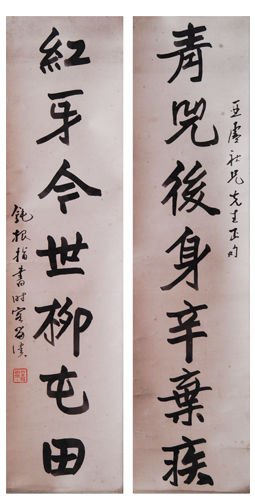 亞廬社兄先生正句
青兕後身辛棄疾
紅牙今世柳屯田
鈍根指書時客留溪